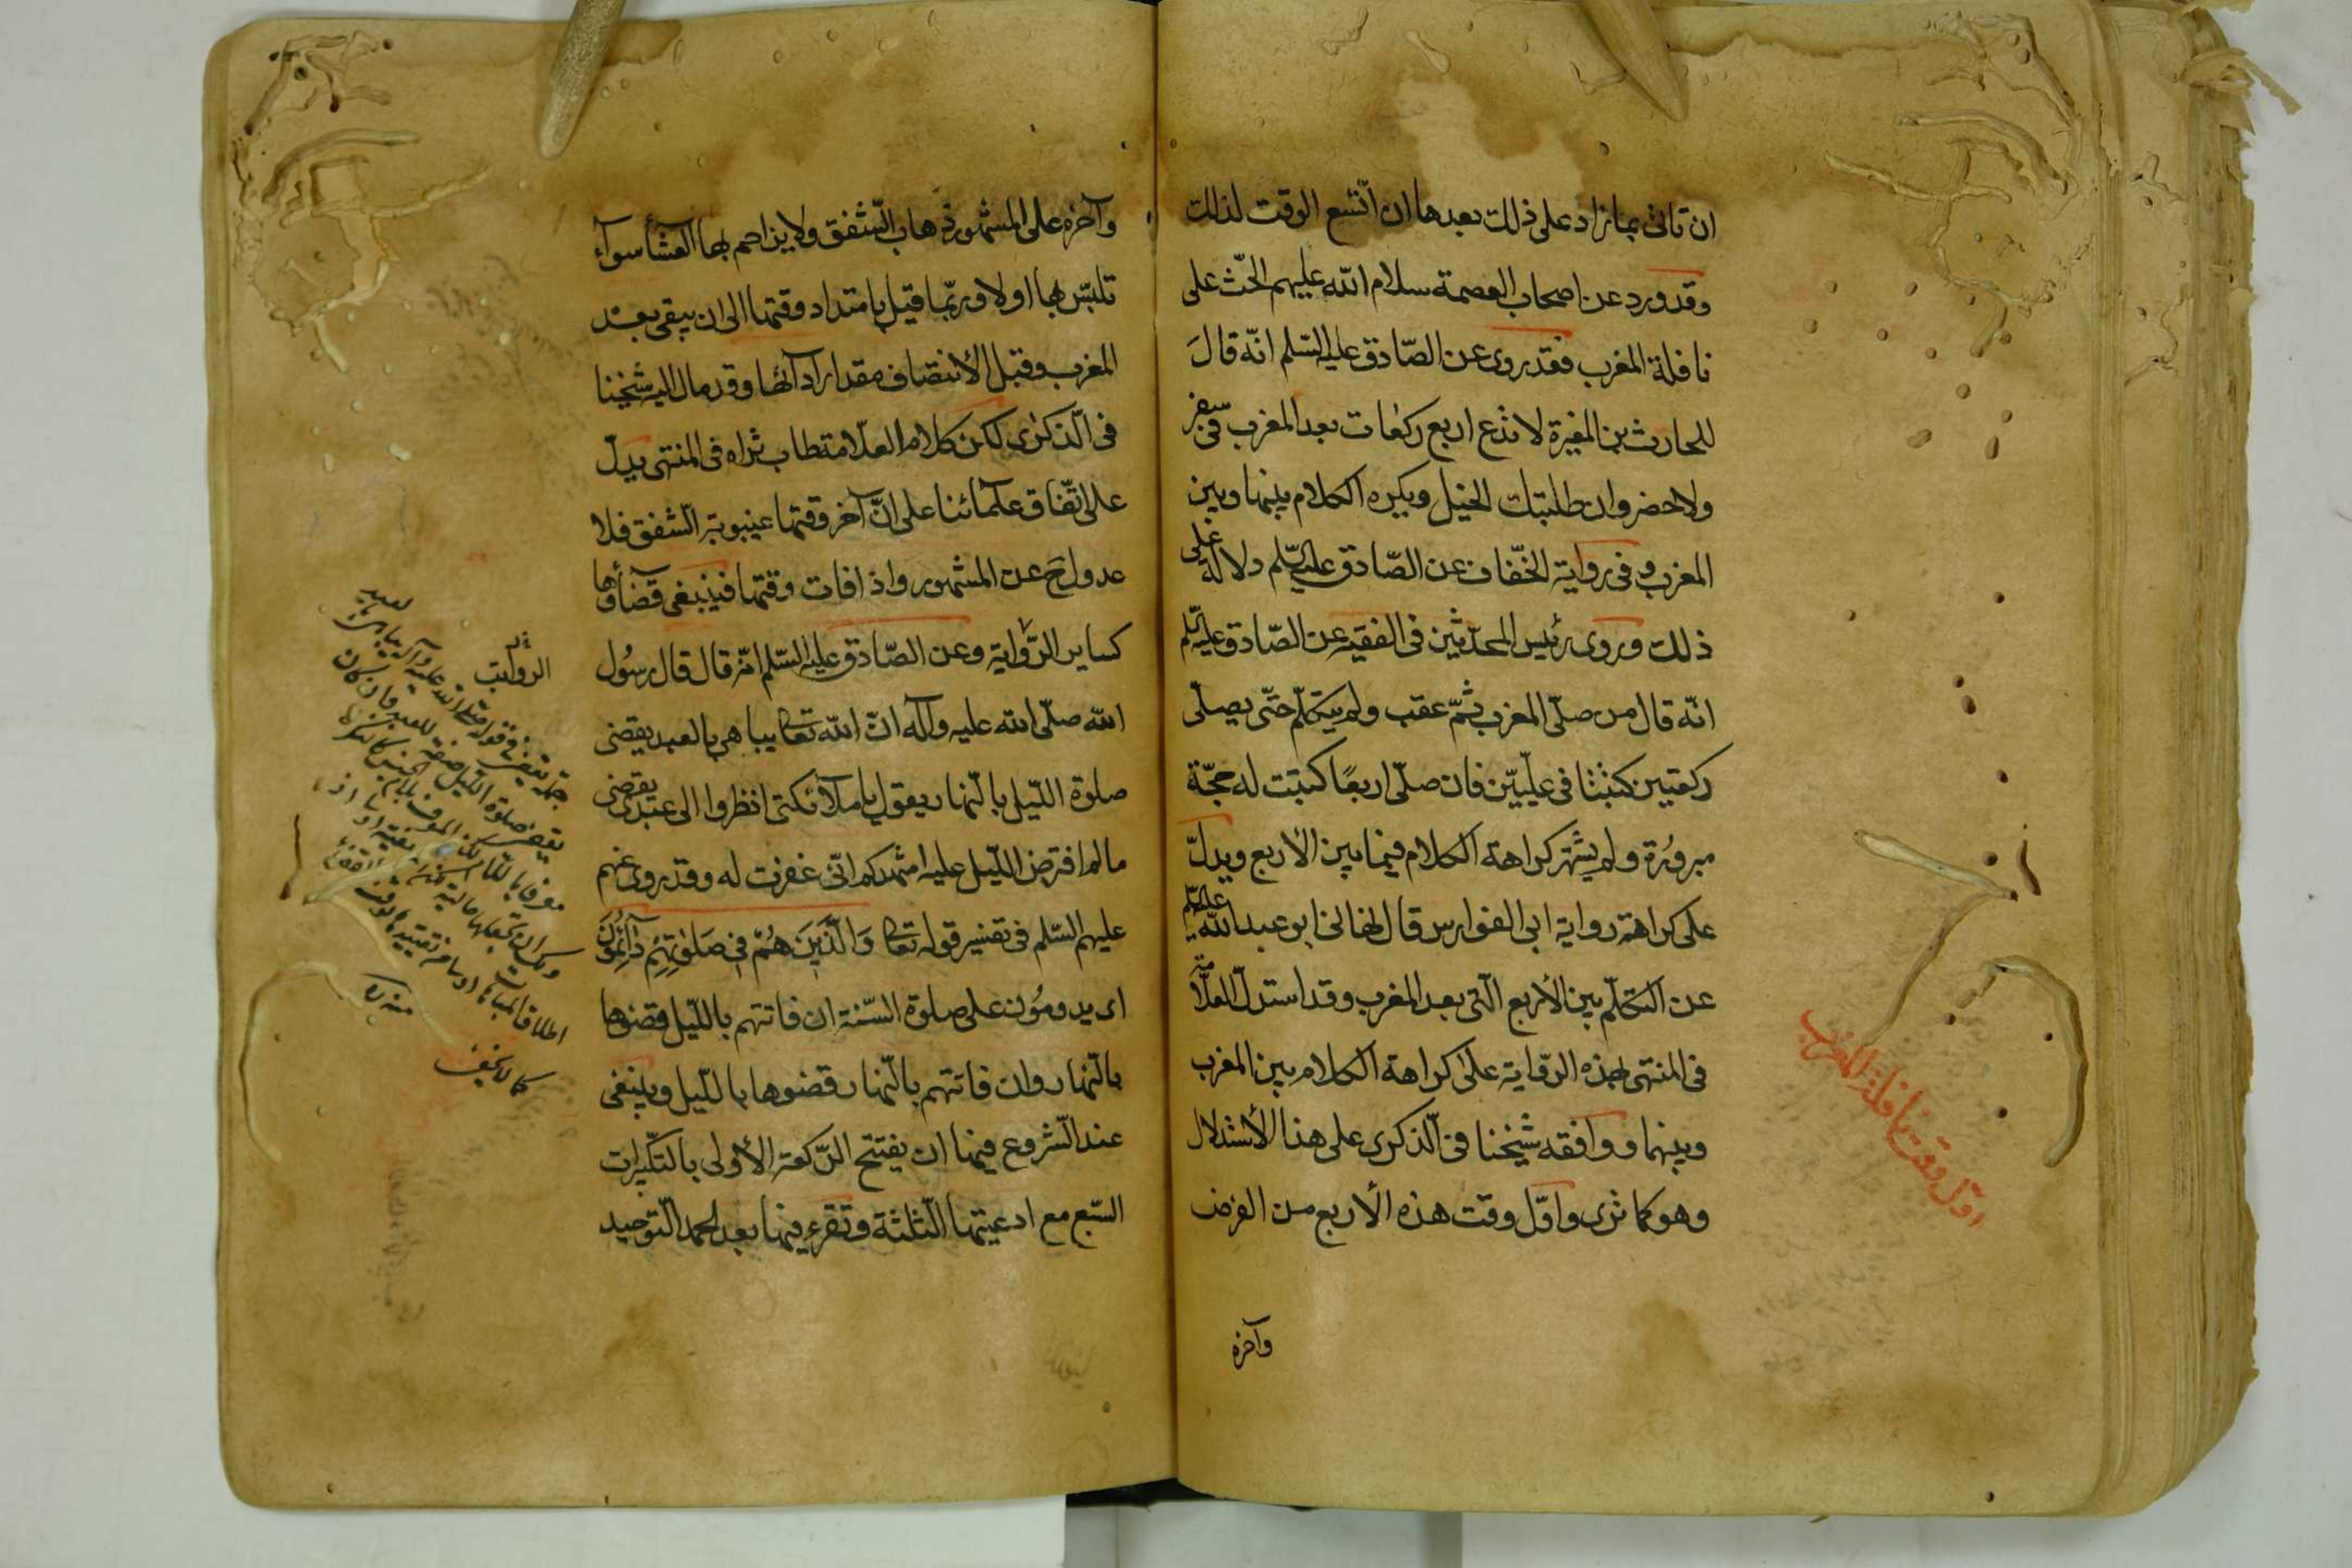 ان تاتى بمازاد على ذلك بعدها ان اتسع الوقت لذلك
وقد ورد عن اصحاب العصمة سلام الله عليهم الحثّ على
نافلة المغرب فقد روى عن الصّادق عليه السّلم انّه قالَ
للحارث بن المغيرة لا تدع اربع ركعات بعد المغرب فى سفر
ولا حضر وان طلبتك الخيل ويكره الكلام بينها وبين
المغرب وفى رواية الخفّاف عن الصّادق عليه السّلم دلالة على
ذلك وروى رئيس المحدّثين فى الفقيه عن الصّادق عليه السّلم
انّه قال من صلّى المغرب ثمّ عقب ولم يتكلّم حتّى يصلّى
ركعتين كتبتا فى علّيّين فان صلّى اربعًا كتبت له حجّة
مبرورة ولم يشتهر كراهة الكلام فيما بين الأربع ويدلّ
على كراهته رواية ابى الفوارس قال نهانى ابو عبد الله عليه السّلم
عن التكلّم بين الأربع الّتى بعد المغرب وقد استدلّ العلّامة
فى المنتهى بهذه الرّواية على كراهة الكلام بين المغرب
وبينها ووافقه شيخنا فى الّذكرى على هذا الأستدلال
وهو كما ترى واوّل وقت هذه الأربع من الفرض
وآخره
اوّل وقت نافلة المغرب
وآخره على المشهور ذهاب الشّفق ولا يزاحم بها العشأ سوآء
تلبّس بها اولا وربّما قيل بامتداد وقتها الى ان يبقى بعد
المغرب وقبل الأنتصاف مقدار ادآئها وقد مال اليه شيخنا
فى الّذكرى لكن كلام العلّامة طاب ثراه فى المنتهى يدلّ
على اتّفاق علمآئنا على انّ آخر وقتها غيبوبة الشّفق فلا
عدول ح عن المشهور واذا فات وقتها فينبغى قضآؤها
كساير الرّواتب وعن الصّادق عليه السّلم انّه قال قال رسُول
الله صلّى الله عليه وآله انّ الله تعالى يباهى بالعبد يقضى
صلوة اللّيل بالنّهار يقول يا ملآئكتى انظروا الى عبدى يقضى
ما لم افترض اللّيل عليه اشهدكم انّى غفرت له وقد روى عنهم
عليهم السّلم فى تفسير قوله تعالى وَالَّذينَ هُمْ فى صَلوٰتِهِمْ دآئِمُونَ
اى يدومُون على صلوة السّنة ان فاتتهم باللّيل قضوها
بالنّهار وان فاتتهم بالنّهار قضوها باللّيل وينبغى
عند الشّروع فيها ان يفتتح الرّكعة الأولى بالتكبيرات
السّبع مع ادعيتها الثّلثة وتقرء فيها بعد الحمد التّوحيد
الرواتب
جملة يقضى فى قوله صلى الله عليه وآله يباهى بالعبد
يقضى صلوة الليل صفة للعبد فان كان
كما لا يخفى
منه ره